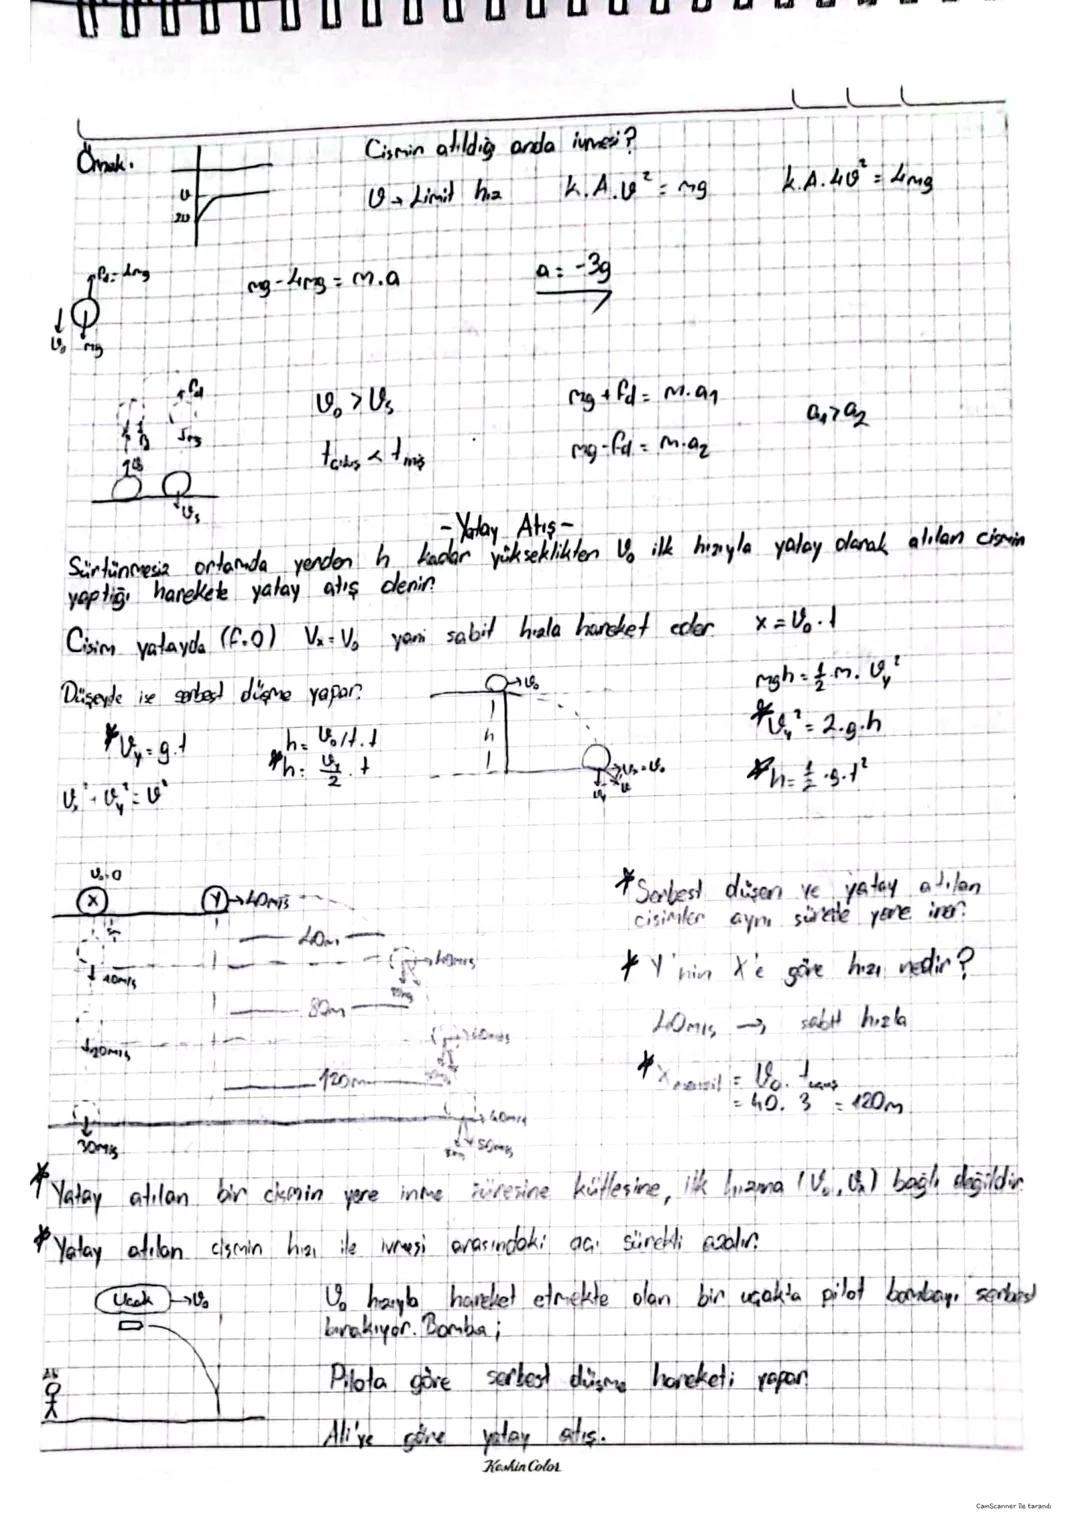 Örnek.
Cismin atıldığı anda ivmesi?
υ
2υ
υ → Limit hız
k.A.υ² = mg
k.A.4υ² = 4mg
fd = 4mg
mg - 4mg = m.a
a = -3g
υ₀
mg
fd
mg
υ₀ > υₛ
mg + fd = m.a₁
a₁ > a₂
tçıkış < tiniş
mg - fd = m.a₂
υₛ
- Yatay Atış -
Sürtünmesiz ortamda yerden h kadar yükseklikten υ₀ ilk hızıyla yatay olarak atılan cismin
yaptığı harekete yatay atış denir.
Cisim yatayda (f.0) Vx = V₀ yani sabit hızla hareket eder. x = υ₀.t
Düşeyde ise serbest düşme yapar.
υ₀
mgh = 1/2 .m. υy²
* υy = g.t
* h = υy/2 . t
h
* υy² = 2.g.h
υx² + υy² = υ²
υx = υ₀
υy
υ
* h = 1/2 .g.t²
υ₀=0
X
Y
40m/s
* Serbest düşen ve yatay atılan
cisimler aynı sürede yere iner.
40m
10m/s
* Y'nin X'e göre hızı nedir?
80m
40m/s → sabit hızla
20m/s
120m
* Xmenzil = υ₀. tuçuş
= 40. 3 = 120m
40m/s
30m/s
50m/s
* Yatay atılan bir cismin yere inme süresine kütlesine, ilk hızına (υ₀, υx) bağlı değildir.
* Yatay atılan cismin hızı ile ivmesi arasındaki açı sürekli azalır.
Uçak
υ₀
υ₀ hızıyla hareket etmekte olan bir uçakta pilot bombayı serbest
bırakıyor. Bomba;
Pilota göre serbest düşme hareketi yapar.
Ali'ye göre yatay atış.
Keskin Color
CamScanner ile tarandı